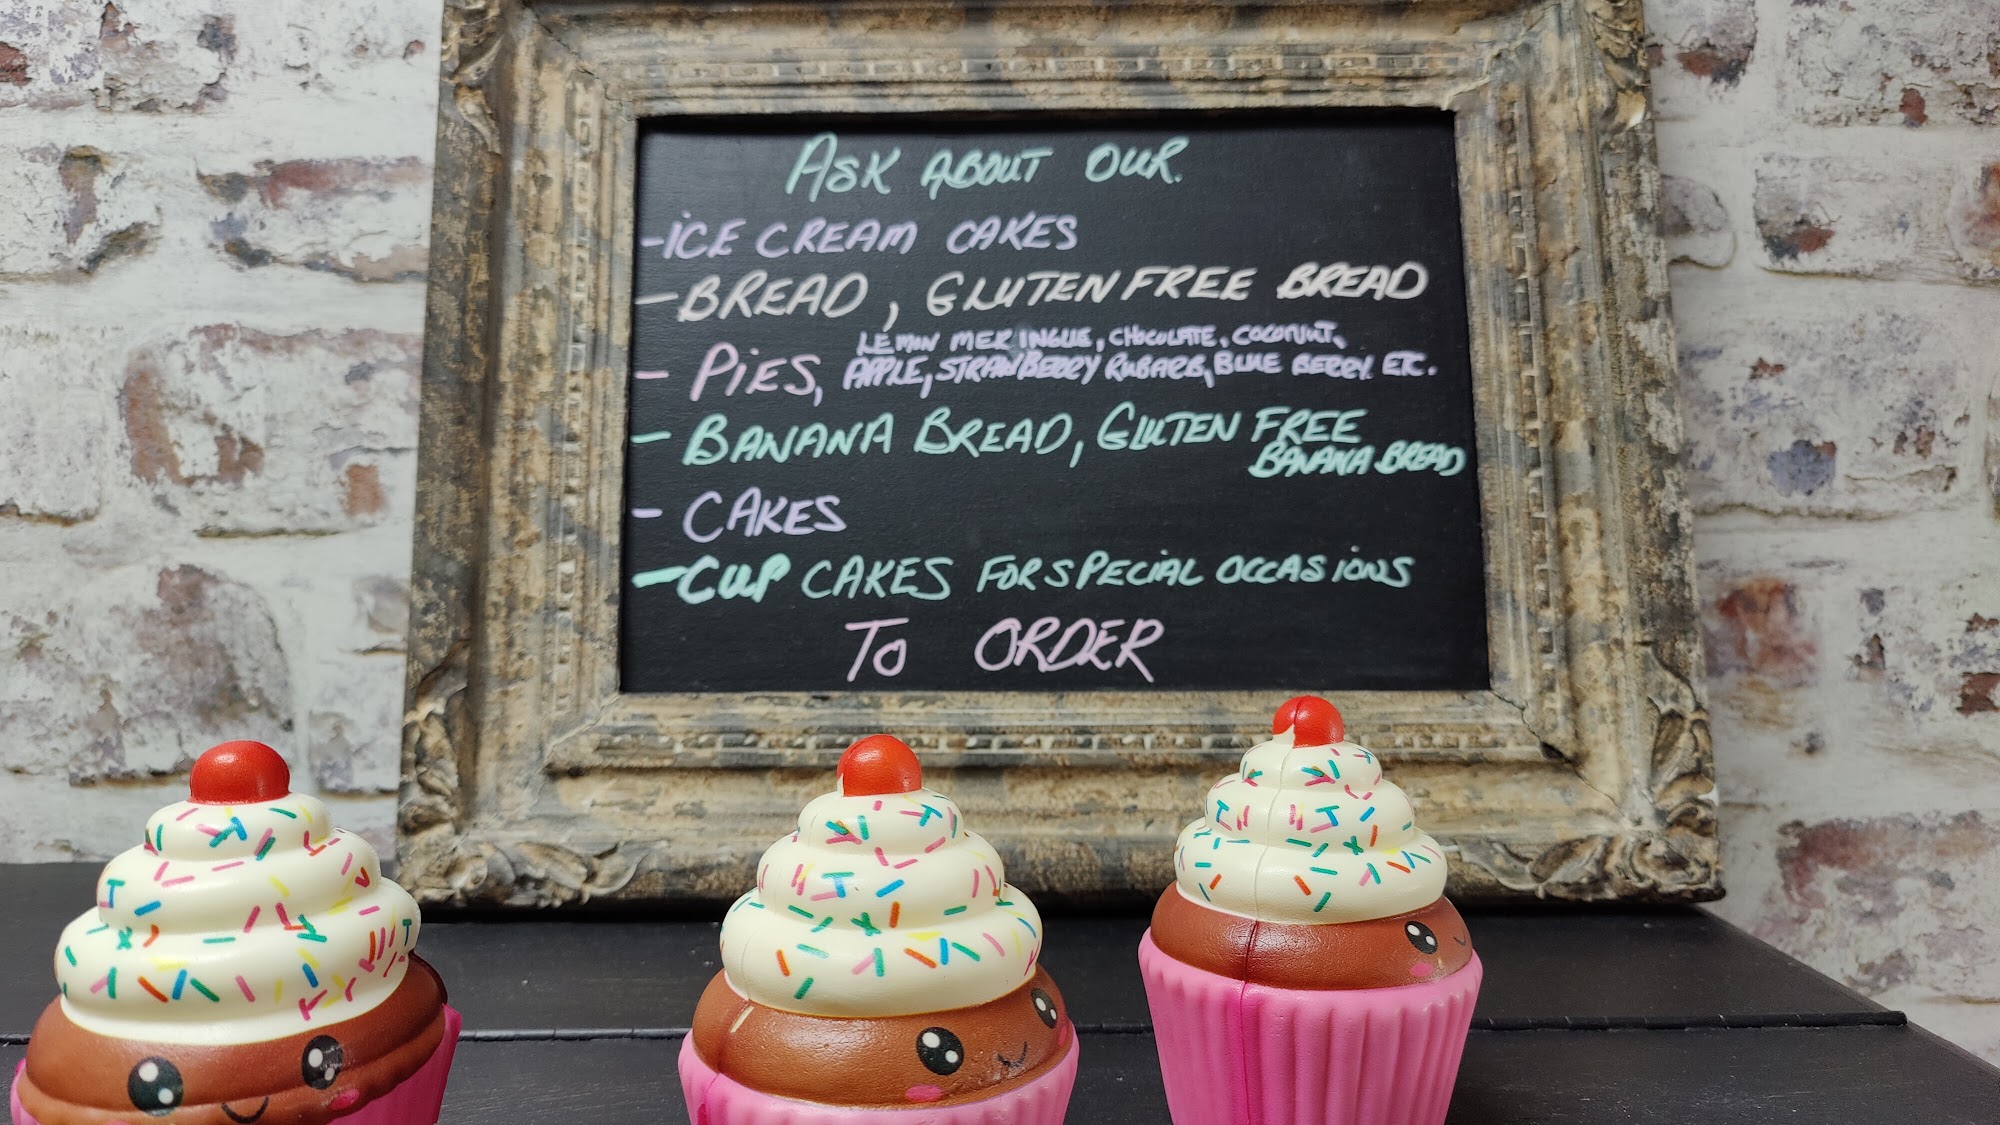 ASK ABOUT OUR.
- ICE CREAM CAKES
- BREAD, GLUTEN FREE BREAD
LEMON MERINGUE, CHOCOLATE, COCONUT,
- PIES, APPLE, STRAWBERRY RUBARB, BLUE BERRY. ETC.
- BANANA BREAD, GLUTEN FREE
BANANA BREAD
- CAKES
- CUP CAKES FOR SPECIAL OCCASIONS
TO ORDER